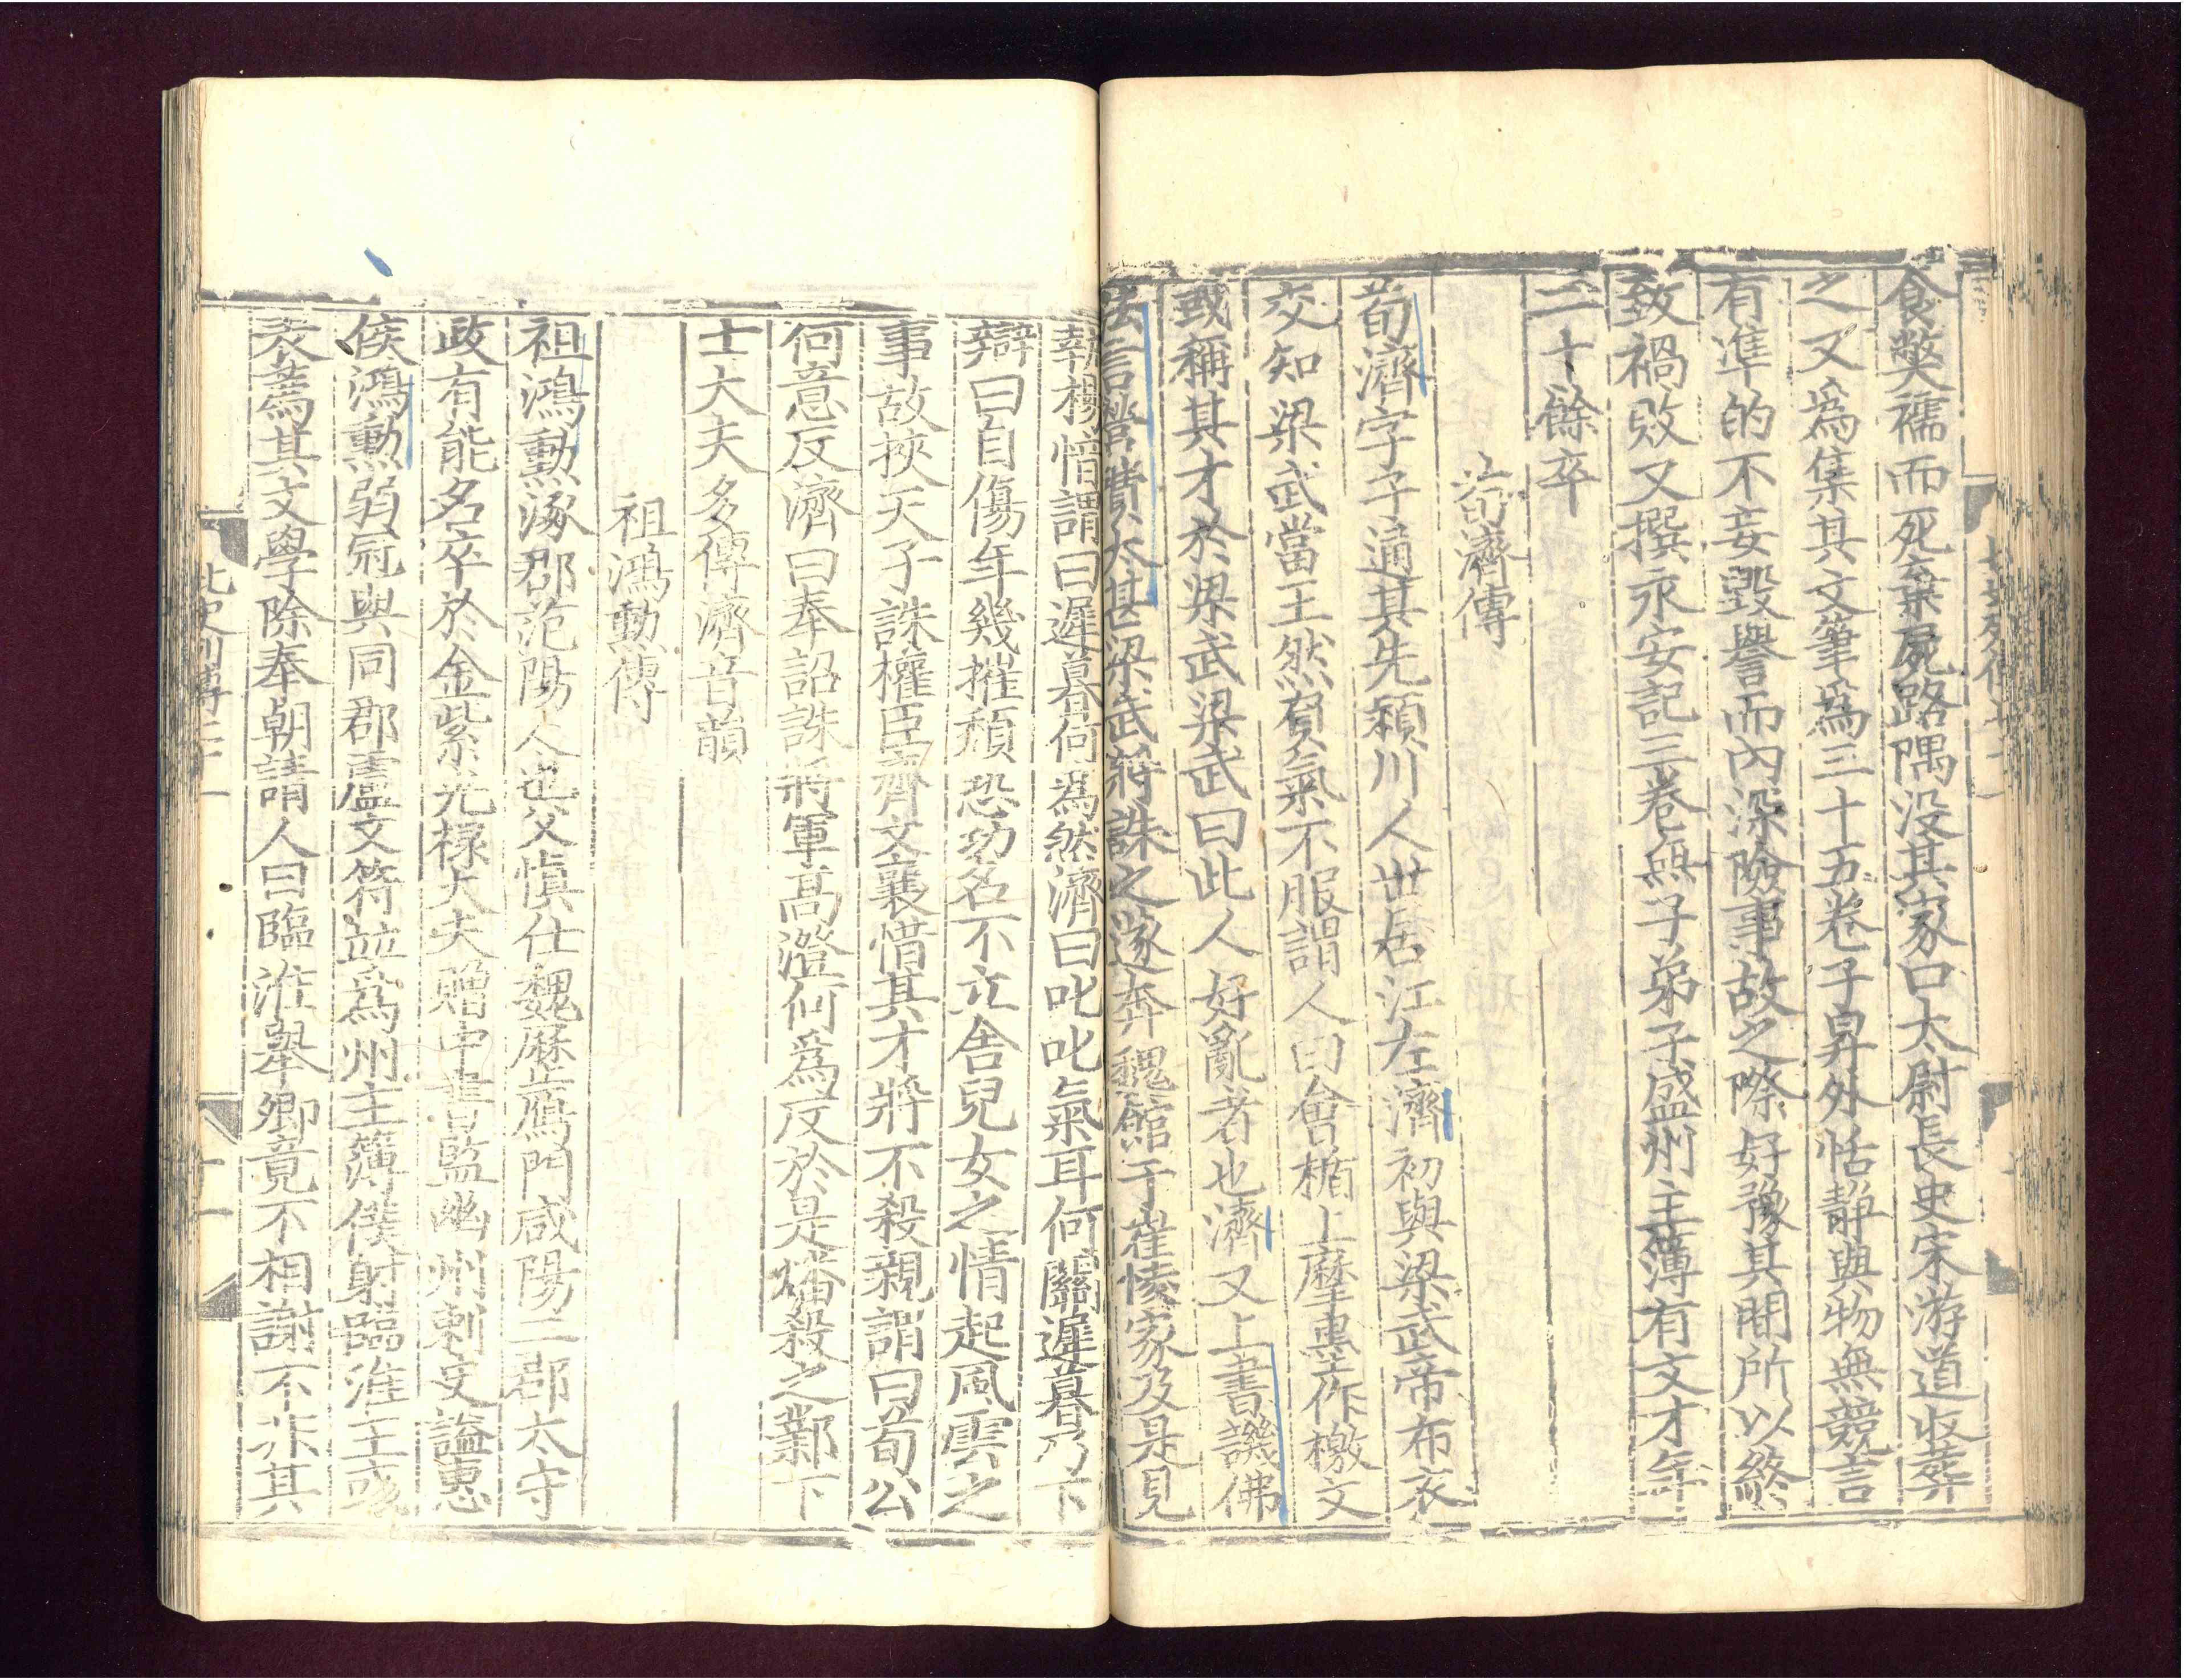 食獘襦而死棄屍路隅没其家口太尉長史宋游道收葬
之又爲集其文筆爲三十五卷子昇外恬靜與物無競言
有準的不妄毀譽而内深險事故之際好豫其間所以終
致禍敗又撰永安記三卷無子弟子盛州主簿有文才年
二十餘卒
荀濟傳
荀濟字子通其先潁川人世居江左濟初與梁武帝布衣
交知梁武當王然負氣不服謂人曰會楯上磨墨作檄文
或稱其才於梁武梁武曰此人好亂者也濟又上書譏佛
法言營費太甚梁武將誅之遂奔魏館于崔㥄家及是見
執楊愔謂曰遲暮何爲然濟曰叱叱氣耳何關遲暮乃下
辯曰自傷年幾摧頹恐功名不立舎兒女之情起風雲之
事故挾天子誅權臣齊文襄惜其才將不殺親謂曰荀公
何意反濟曰奉詔誅將軍高澄何爲反於是燔殺之鄴下
士大夫多傳濟音韻
祖鴻勳傳
祖鴻勳涿郡范陽人也父愼仕魏歷鴈門咸陽二郡太守
政有能名卒於金紫光祿大夫贈中書監幽州刺史謚惠
侯鴻勳弱冠與同郡盧文符並爲州主簿僕射臨淮王彧
表薦其文學除奉朝請人曰臨淮舉卿竟不相謝不非其
北史列傳七十一
十一